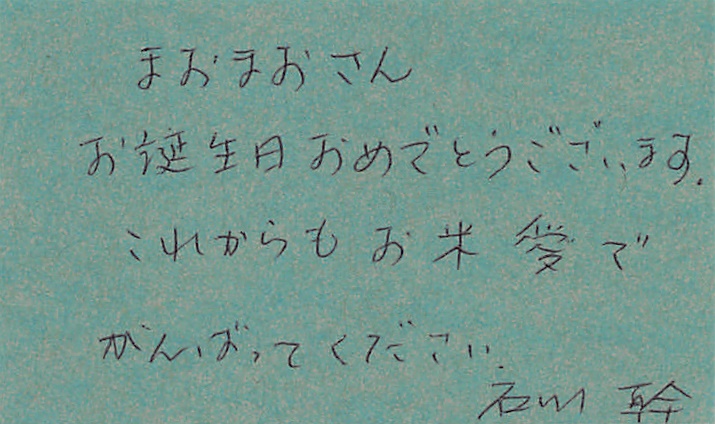 まおまおさん
お誕生日おめでとうございます.
これからもお米愛で
がんばってください.
石川 幹